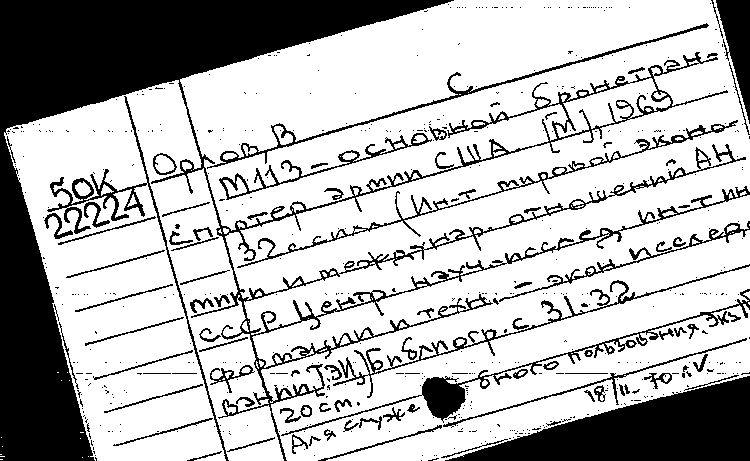 С
Орлов, В
50К
22224
М113 – основной бронетран-
спортер армии США. [М], 1969
32 с. с илл. (Ин-т мировой эконо-
мики и междунар. отношений АН
СССР. Центр. науч.-исслед. ин-т ин
формации и техн. – экон исслед
ваний, ТЭИ,) Библиогр. с. 31-32
20 см.
Для служе бного пользования. Экз
18/II-70 г.